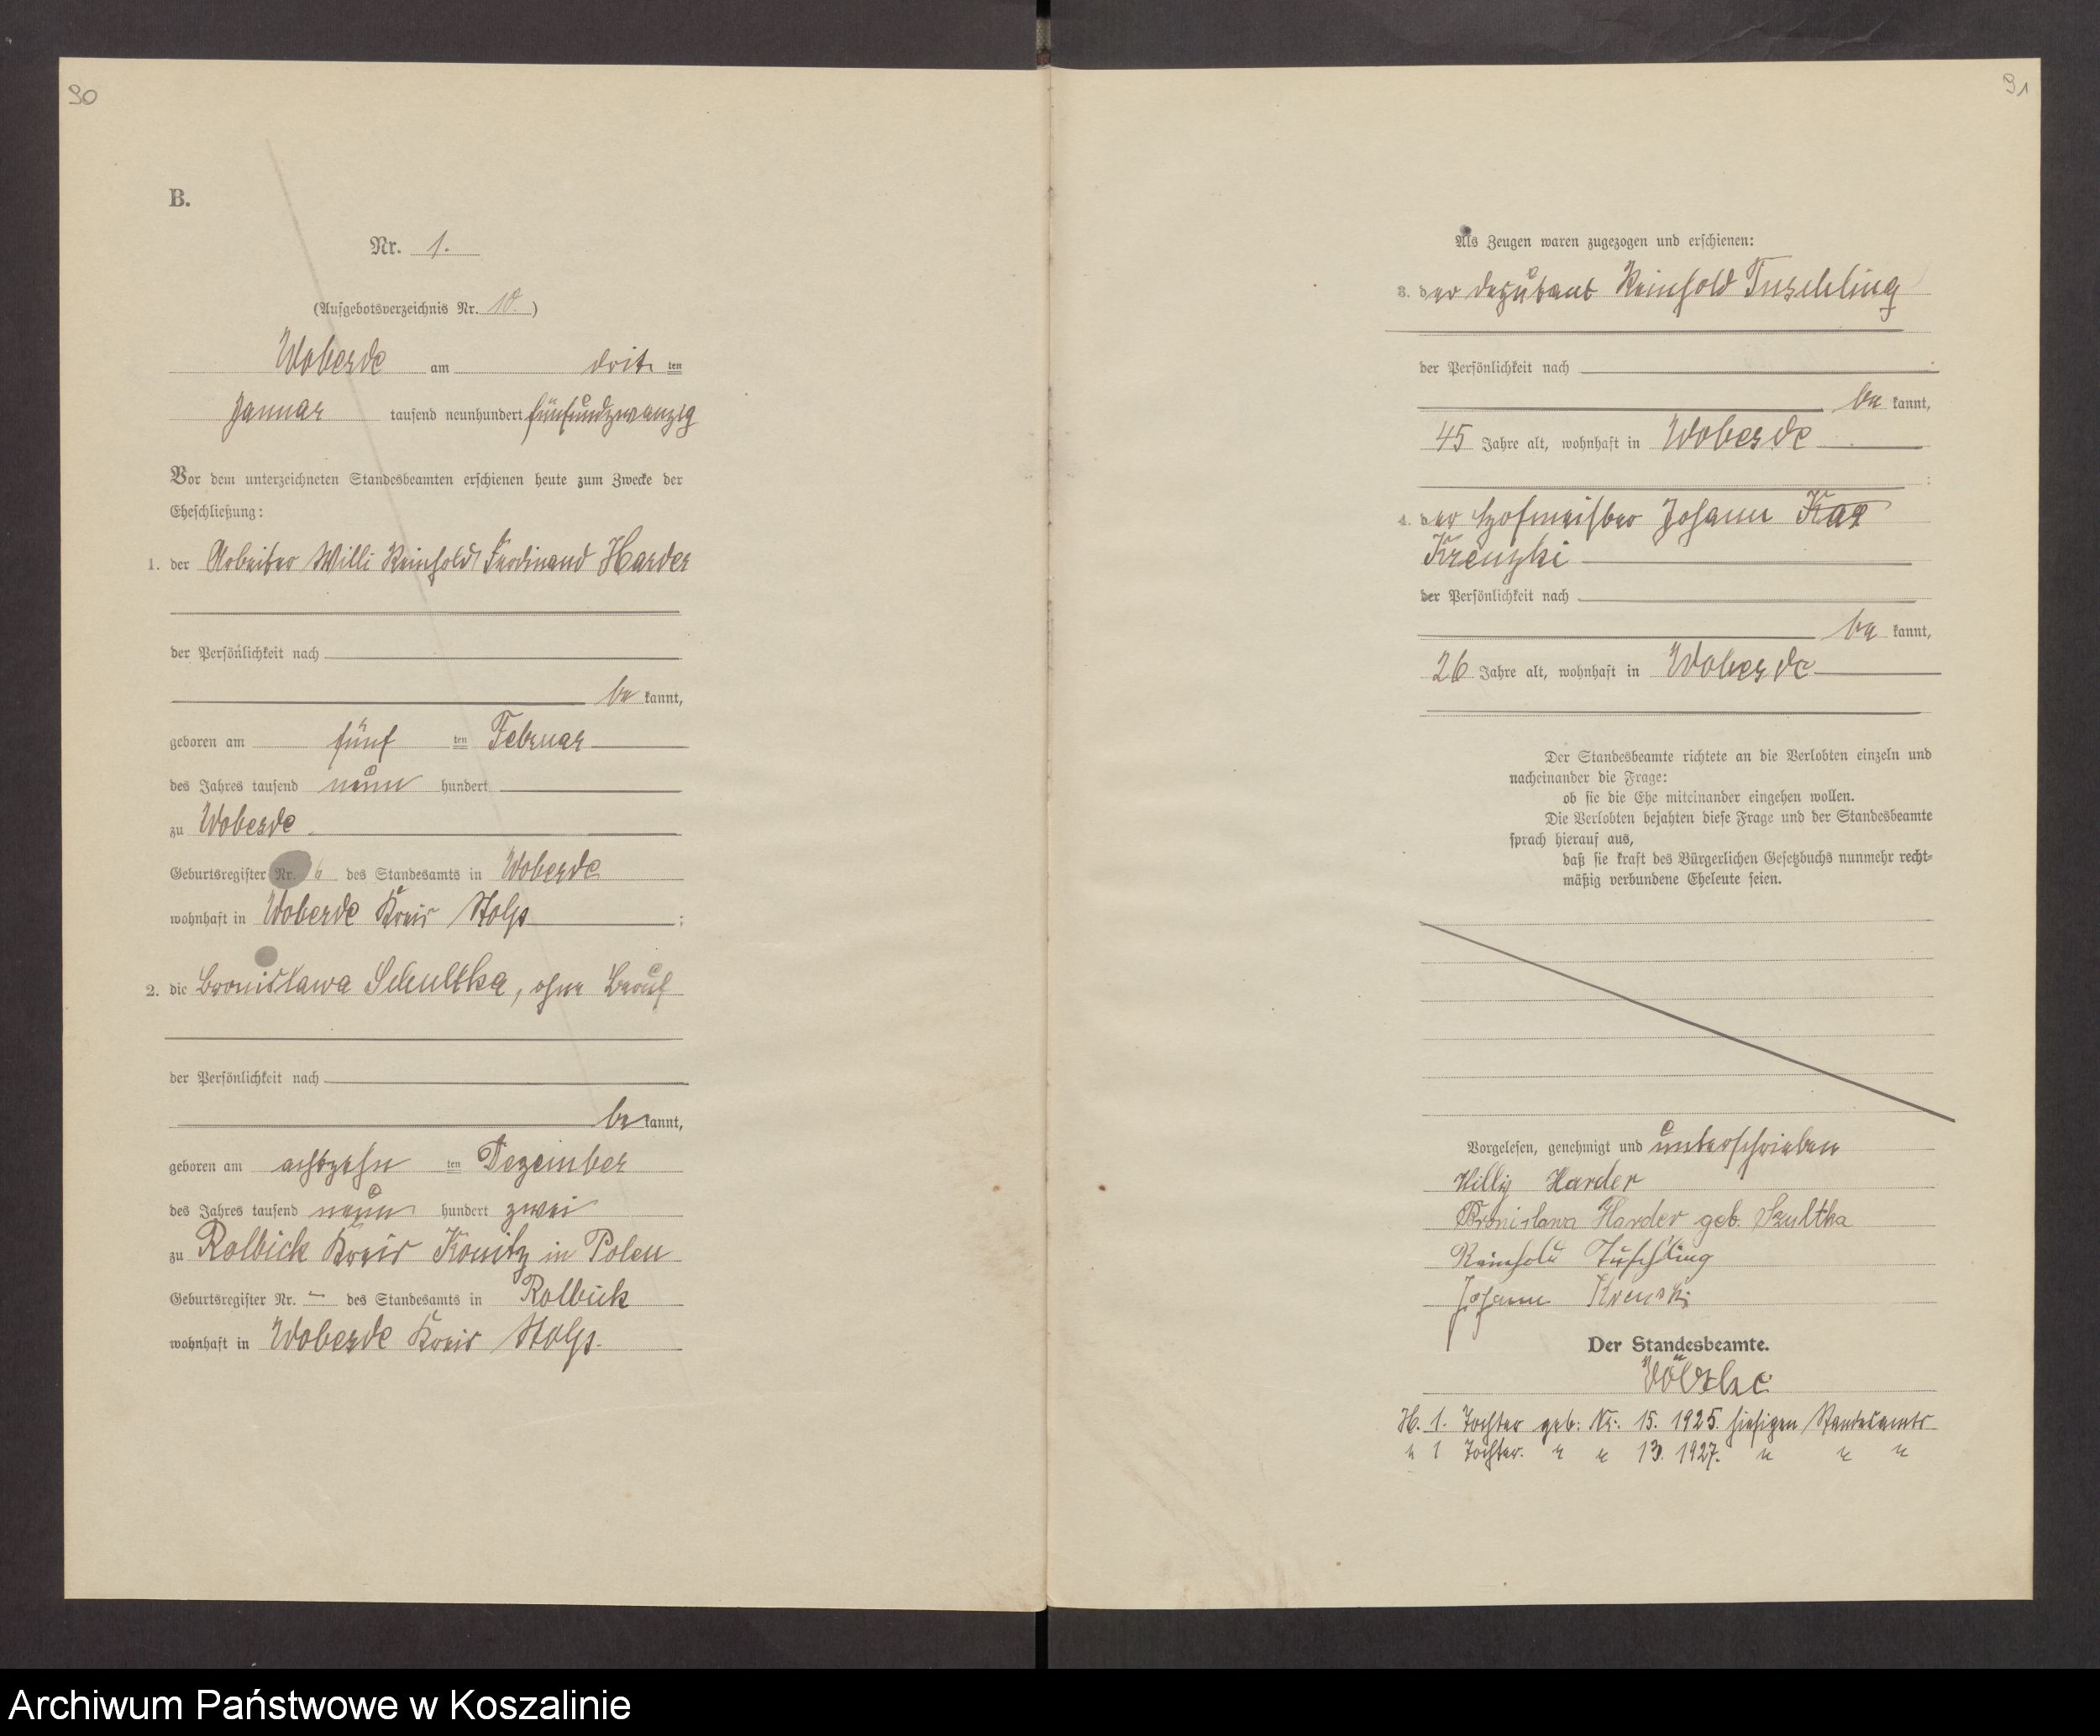 90
B.
Nr. 1.
(Aufgebotsverzeichnis Nr. 10.)
Wobesde am drit ten
Januar tausend neunhundert fünfundzwanzig
Vor dem unterzeichneten Standesbeamten erschienen heute zum Zwecke der
Eheschließung:
1. der Arbeiter Willi Reinhold Ferdinand Harder
der Persönlichkeit nach
be kannt,
geboren am fünf ten Februar
des Jahres tausend neun hundert
zu Wobesde
Geburtsregister Nr. 6 des Standesamts in Wobesde
wohnhaft in Wobesde Kreis Stolp ;
2. die Bronislawa Schultka, ohne Beruf
der Persönlichkeit nach
be kannt,
geboren am achtzehn ten Dezember
des Jahres tausend neun hundert zwei
zu Rolbick Kreis Konitz in Polen
Geburtsregister Nr. – des Standesamts in Rolbick
wohnhaft in Wobesde Kreis Stolp.
91
Als Zeugen waren zugezogen und erschienen:
3. der Deputant Reinhold Tuschling
der Persönlichkeit nach
be kannt,
45 Jahre alt, wohnhaft in Wobesde
;
4. der Hofmeister Johann
Krenzki
der Persönlichkeit nach
be kannt,
26 Jahre alt, wohnhaft in Wobesde
Der Standesbeamte richtete an die Verlobten einzeln und
nacheinander die Frage:
ob sie die Ehe miteinander eingehen wollen.
Die Verlobten bejahten diese Frage und der Standesbeamte
sprach hierauf aus,
daß sie kraft des Bürgerlichen Gesetzbuchs nunmehr recht-
mäßig verbundene Eheleute seien.
Vorgelesen, genehmigt und unterschrieben
Willy Harder
Bronislawa Harder geb. Szultka
Reinhold Tuschling
Johann Krenski
Der Standesbeamte.
H. 1. Tochter geb: Nr: 15. 1925. hiesigen Standesamts
" 1 Tochter. " " 13. 1927. " " "
Archiwum Państwowe w Koszalinie